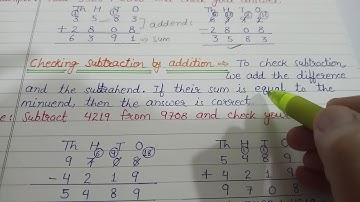 and check your answer
Th H T O
3 5 8 3
+ 2 8 0 8
6 3 9 1
] addends
→ sum
Th H T O
- 2 8 0 8
3 5 8 3
Checking subtraction by addition ⇒ To check subtraction,
we add the difference
and the subtrahend. If their sum is equal to the
minuend, then the answer is correct.
: Subtract 4219 from 9708 and check
Th H T O
6 9 18
9 7 0 8
- 4 2 1 9
5 4 8 9
Th H T O
5 4 8 9
+ 4 2 1 9
9 7 0 8